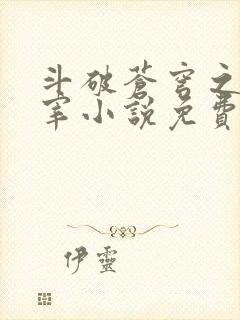 斗破蒼穹之
宰小說免費
伊靈